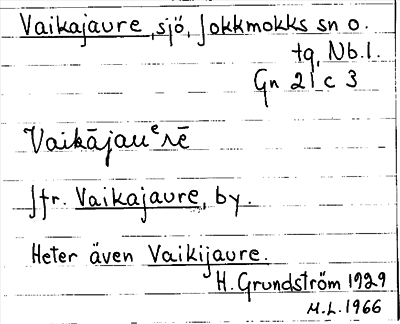 Vaikajaure, sjö, Jokkmokks sn o.
tg, Nb.l.
Gn 21 c 3
Vaikājauᵉrē
Jfr. Vaikajaure, by.
Heter även Vaikijaure.
H. Grundström 1929
M.L. 1966